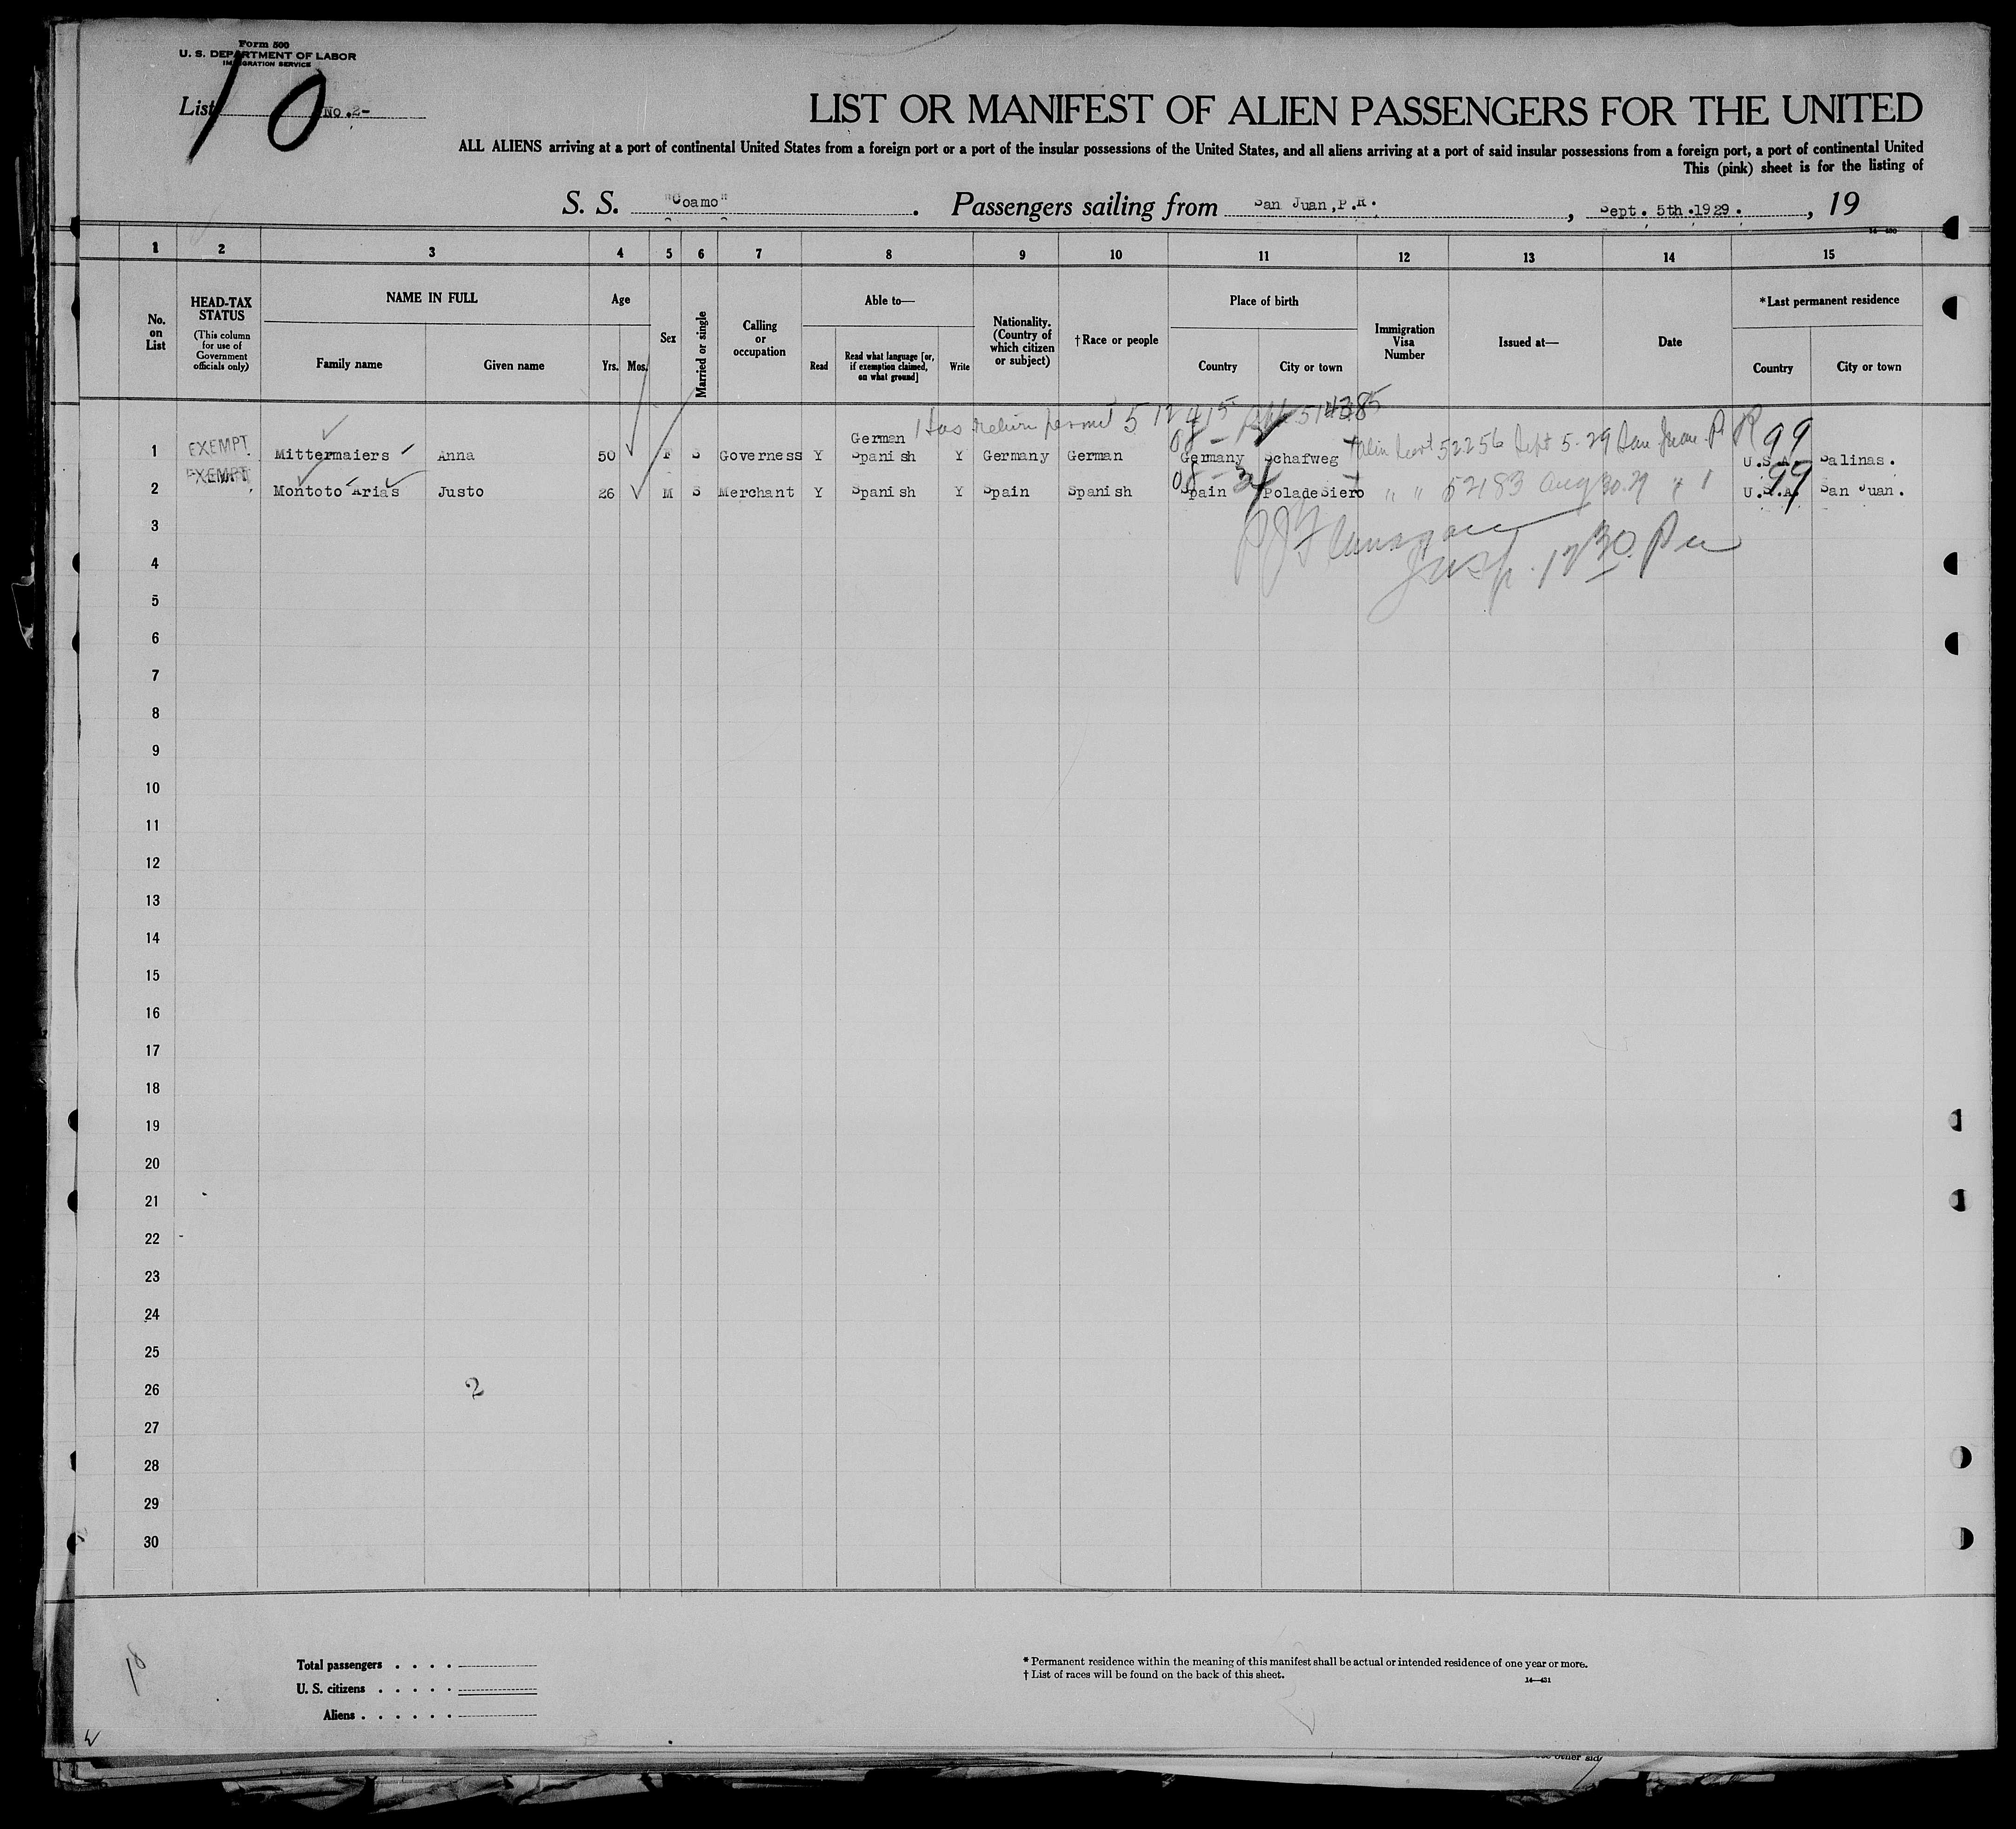 Form 500
U. S. DEPARTMENT OF LABOR
IMMIGRATION SERVICE
List No.2-
10
LIST OR MANIFEST OF ALIEN PASSENGERS FOR THE UNITED
ALL ALIENS arriving at a port of continental United States from a foreign port or a port of the insular possessions of the United States, and all aliens arriving at a port of said insular possessions from a foreign port, a port of continental United
This (pink) sheet is for the listing of
S. S. "Coamo". Passengers sailing from San Juan,P.R., Sept. 5th.1929., 19
14-430
1 2 3 4 5 6 7 8 9 10 11 12 13 14 15
No. on List
HEAD-TAX STATUS (This column for use of Government officials only)
NAME IN FULL
Family name
Given name
Age
Yrs.
Mos.
Sex
Married or single
Calling or occupation
Able to—
Read
Read what language [or, if exemption claimed, on what ground]
Write
Nationality. (Country of which citizen or subject)
†Race or people
Place of birth
Country
City or town
Immigration Visa Number
Issued at—
Date
*Last permanent residence
Country
City or town
Has return permit
1 EXEMPT Mittermaiers Anna 50 F S Governess Y German Spanish Y Germany German Germany Schafweg 52256 Sept 5-29 San Juan P R U.S.A. Salinas.
99
2 EXEMPT Montoto Arias Justo 26 M S Merchant Y Spanish Y Spain Spanish Spain PoladeSiero " " 52183 Aug 30.29 U.S.A. San Juan.
99
3
Insp.
4
5
6
7
8
9
10
11
12
13
14
15
16
17
18
19
20
21
22
23
24
25
26
2
27
28
29
30
Total passengers . . . .
U. S. citizens . . . . .
Aliens . . . . . .
* Permanent residence within the meaning of this manifest shall be actual or intended residence of one year or more.
† List of races will be found on the back of this sheet.
14-431
10
other sid